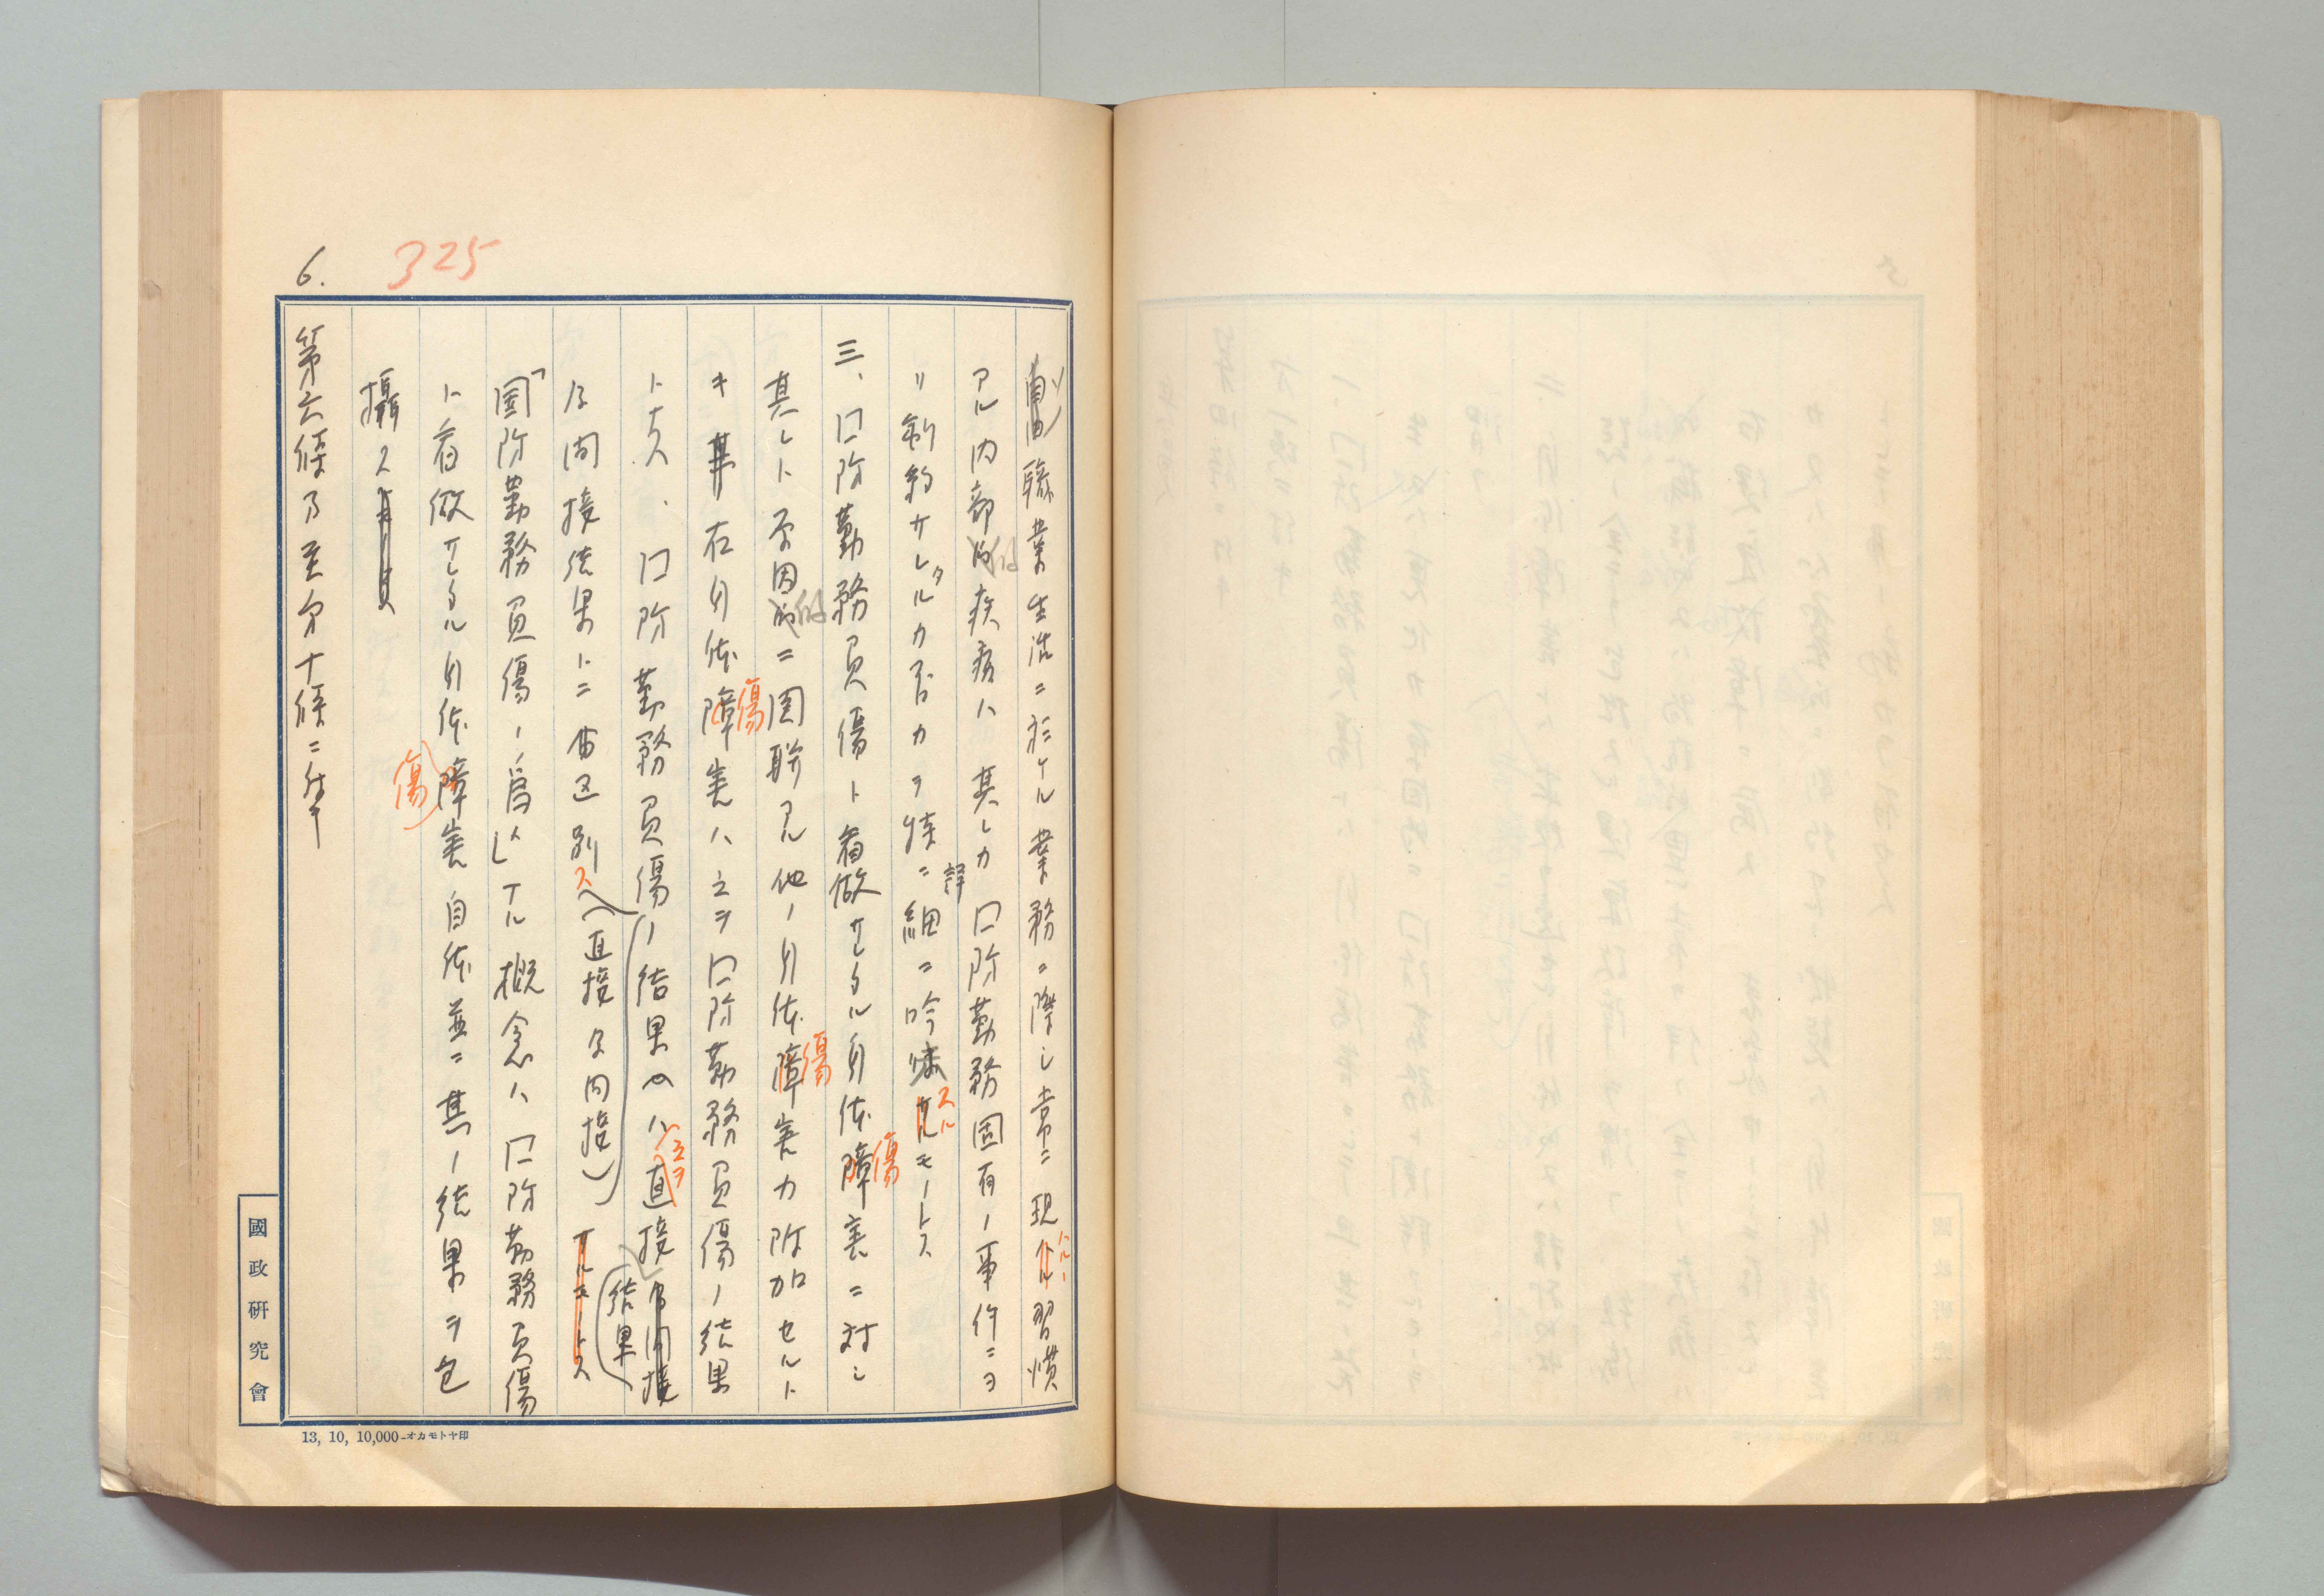 6.
325
職業生活ニ於ケル業務ニ際シ常ニ現ハルル習慣
アル内部的疾病ハ其レカ囗防勤務固有ノ事件ニヨ
リ制約サレタルカ否カヲ特ニ詳細ニ吟味スルモノトス
三、囗防勤務負傷ト看做サレタル身体傷害ニ対シ
其レト原因的ニ関聯アル他ノ身体傷害カ附加セルト
キ右身体傷害ハ之ヲ囗防勤務負傷ノ結果
トナス、囗防勤務負傷ノ結果ハ之ヲ直接結果
及間接結果トニ区別ス(直接及間接)
「国防勤務負傷ノ為メ」ナル概念ハ囗防勤務負傷
ト看做サレタル身体傷害自体並ニ其ノ結果ヲ包
攝ス
第六條乃至第十條ニ付キ
國政研究會
13, 10, 10,000-オカモトヤ印